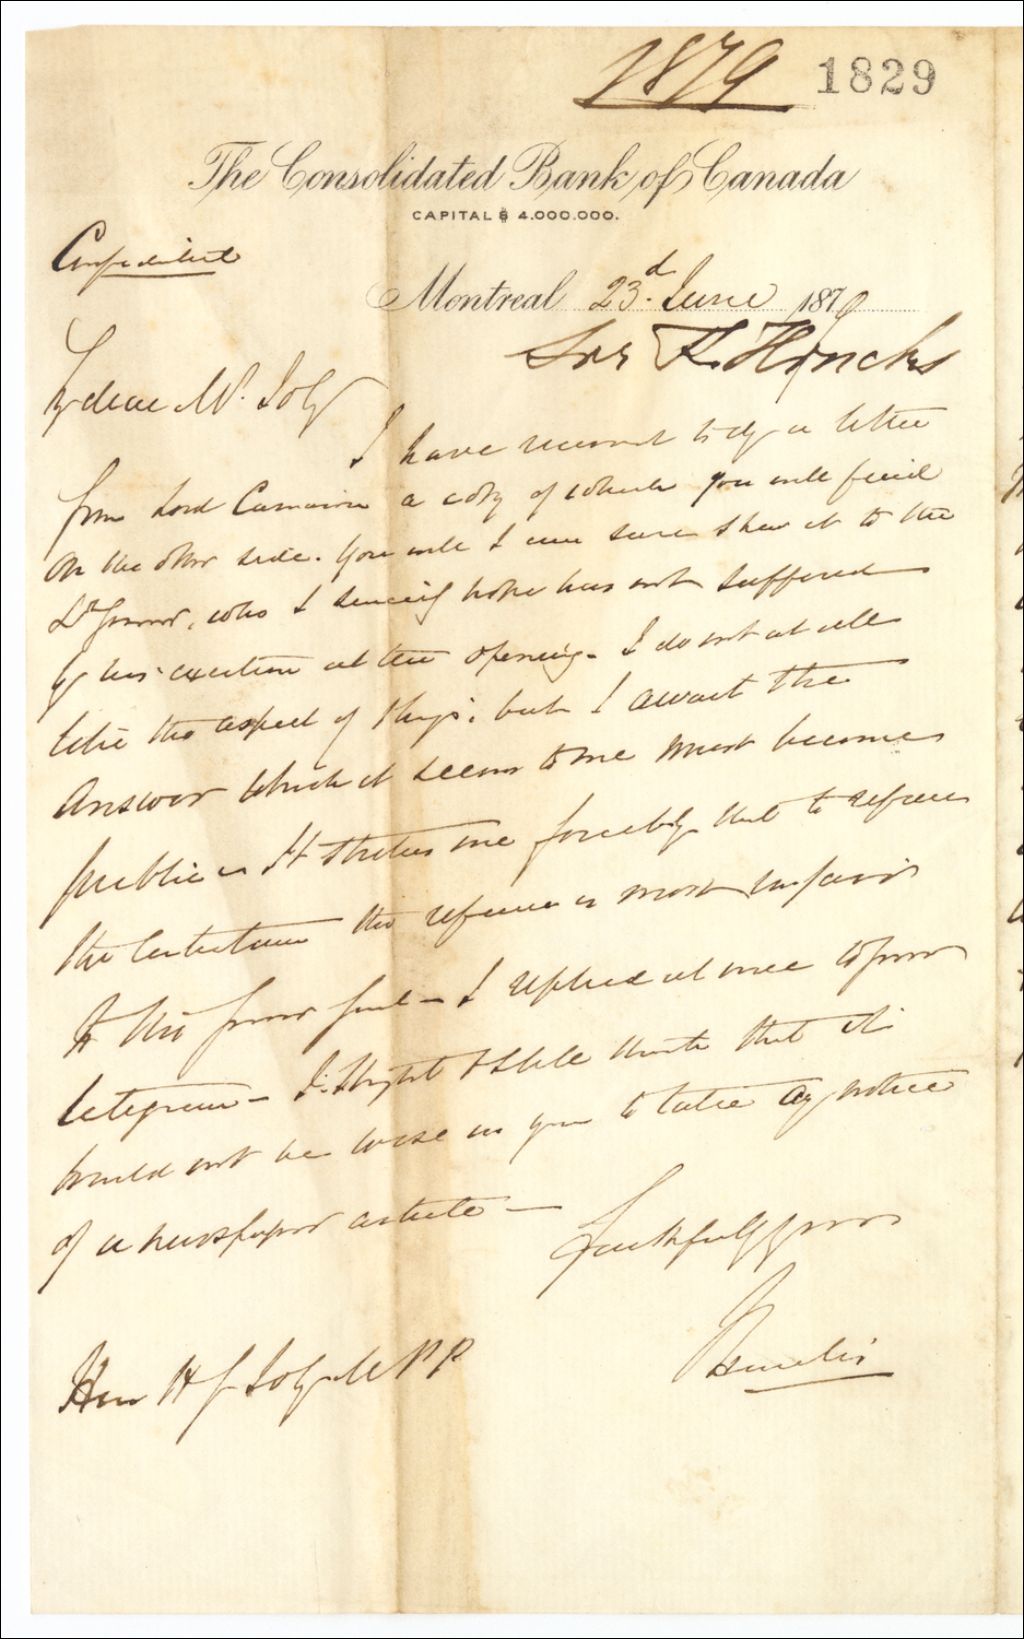 1879 1829
The Consolidated Bank of Canada
CAPITAL $ 4.000.000.
Confidential
Montreal 23d. June 1879
Sir F. Hincks
My dear Mr. Joly
I have received to day a letter
from Lord a copy of which you will find
on the other side. You will I am sure shew it to the
Lt Govnor, who I sincerely hope has not suffered
by his exertion at the opening. I do not at all
like the aspect of things, but I await the
answer which it seems to me must become
public. It strikes me forcibly that to refuse
the the reference is most unfair
to the I replied at once
I thought that it
would not be wise in you to take any notice
of a newspaper article —
Faithfully yours
F Hincks
Hon H G Joly M P P